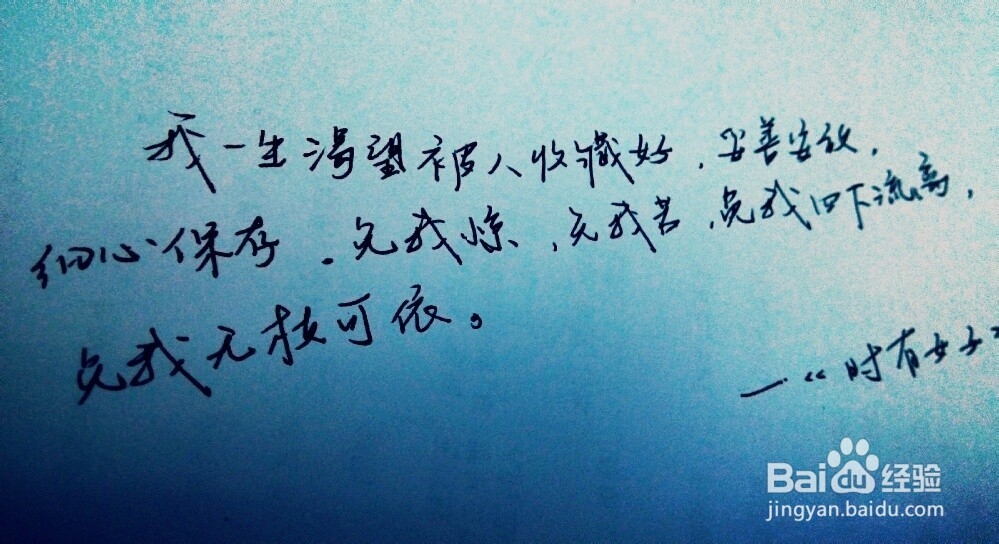 我一生渴望被人收藏好，妥善安放，
细心保存。免我惊，免我苦，免我四下流离，
免我无枝可依。
—《时有女子》
Bai du 经验
jingyan.baidu.com